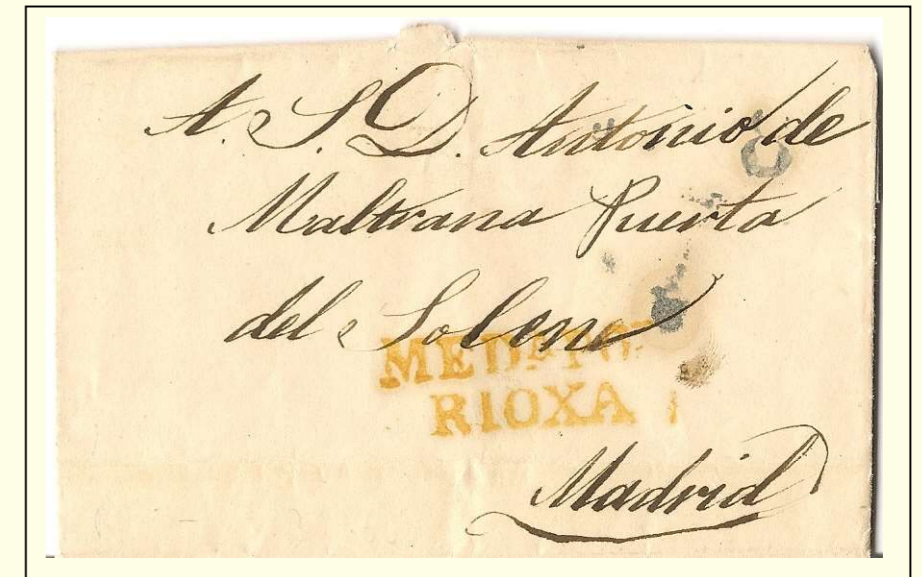 A. S. D. Antonio de
Maltrana Puerta
del Sol en
RIOXA
Madrid